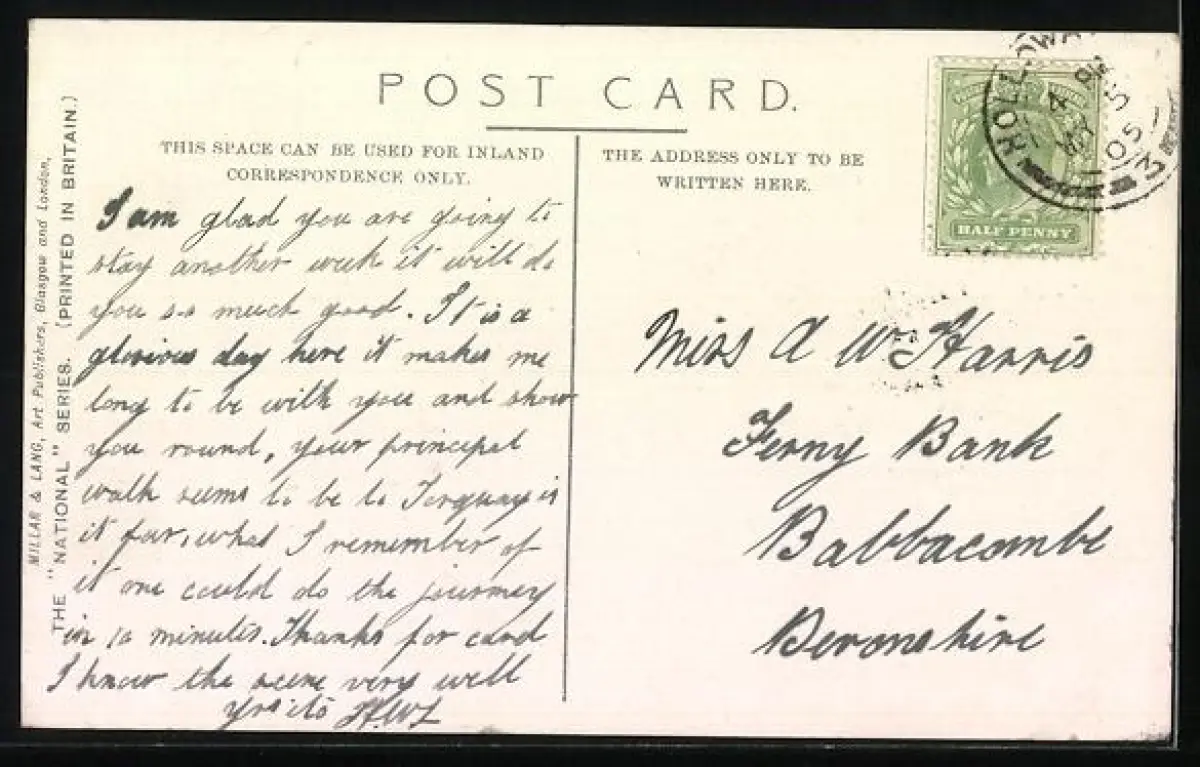 POST CARD.
THIS SPACE CAN BE USED FOR INLAND
CORRESPONDENCE ONLY.
THE ADDRESS ONLY TO BE
WRITTEN HERE.
MILLAR & LANG, Art Publishers, Glasgow and London.
THE "NATIONAL" SERIES. (PRINTED IN BRITAIN.)
I am glad you are going to
stay another week it will do
you so much good. It is a
glorious day here it makes me
long to be with you and show
you round, your principal
walk seems to be to Torquay is
it far, what I remember of
it one could do the journey
in 10 minutes. Thanks for card
I know the scene very well
Yrs
HOLLOWAY
MY 4
05
HALF PENNY
Miss A Harris
Ferny Bank
Babbacombe
Devonshire